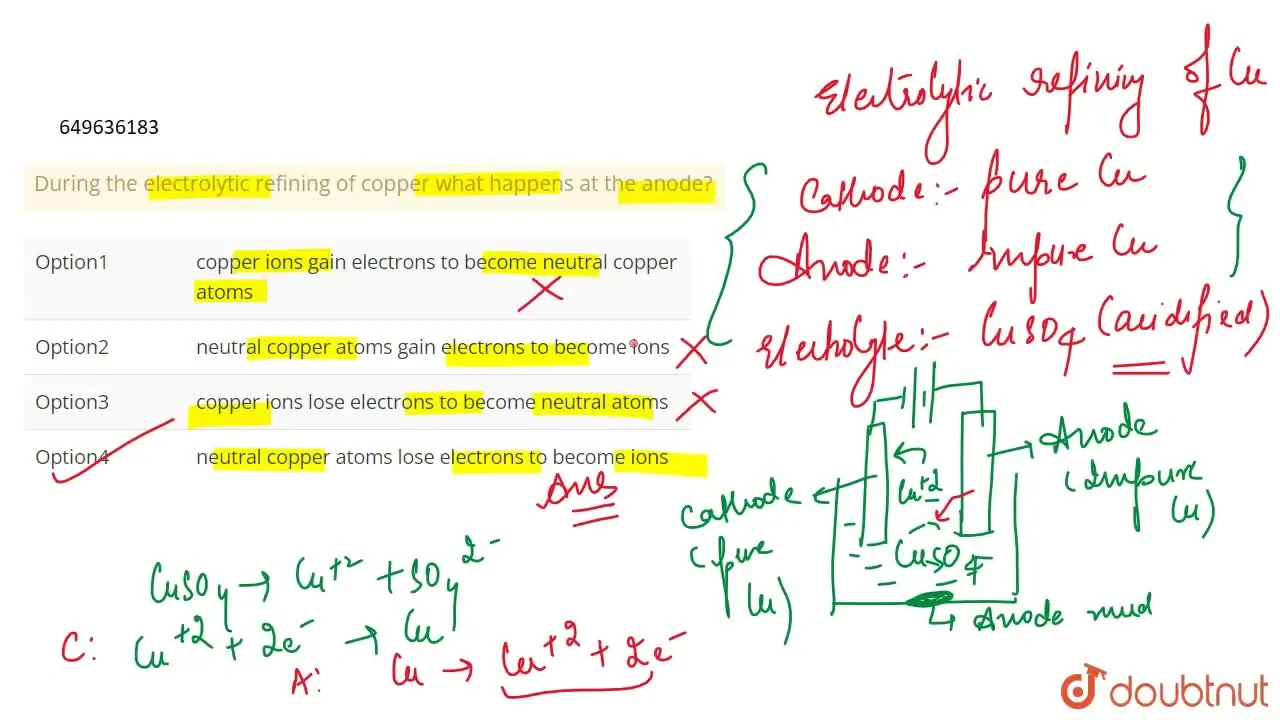 Electrolytic refining of Cu
649636183
During the electrolytic refining of copper what happens at the anode?
Cathode:- pure Cu
Anode:- Impure Cu
Electrolyte:- CuSO4 (acidified)
Option1 copper ions gain electrons to become neutral copper
atoms
Option2 neutral copper atoms gain electrons to become ions
Option3 copper ions lose electrons to become neutral atoms
Option4 neutral copper atoms lose electrons to become ions
Ans
Anode
(Impure
Cu)
Cathode
(pure
Cu)
Cu+2
CuSO4
Anode mud
CuSO4 → Cu+2 + SO4 2-
C: Cu+2 + 2e- → Cu
A: Cu → Cu+2 + 2e-
doubtnut